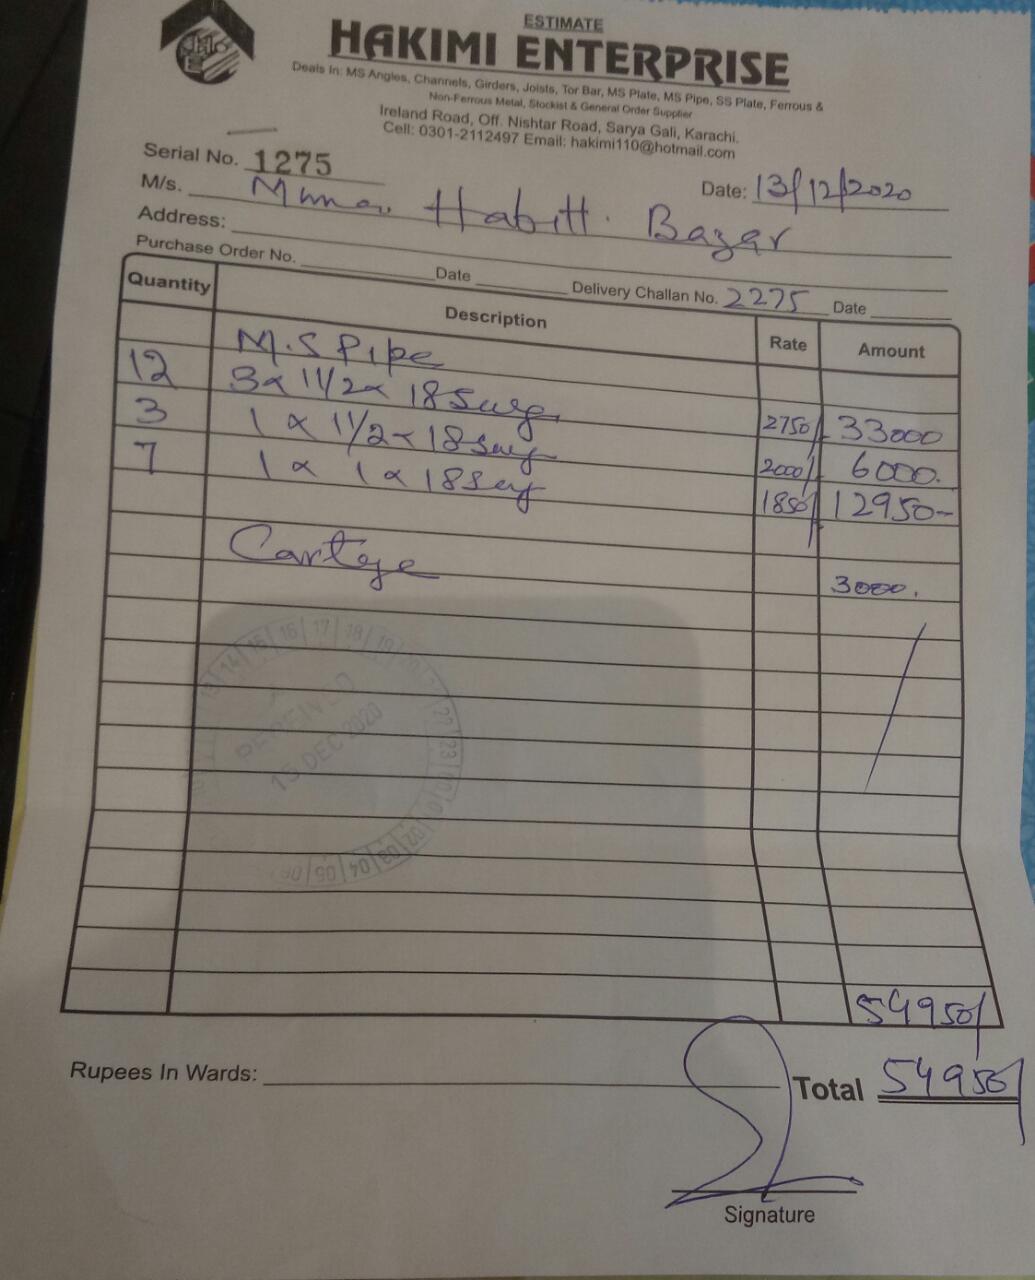 ESTIMATE
HAKIMI ENTERPRISE
Deals In: MS Angles, Channels, Girders, Joists, Tor Bar, MS Plate, MS Pipe, SS Plate, Ferrous &
Non-Ferrous Metal, Stockist & General Order Supplier
Ireland Road, Off. Nishtar Road, Sarya Gali, Karachi.
Cell: 0301-2112497 Email: hakimi110@hotmail.com
Serial No. 1275 Date: 13/12/2020
M/s. Habitt. Bazar
Address:
Purchase Order No. Date Delivery Challan No. 2275 Date
Quantity Description Rate Amount
M.S Pipe
12 3 x 11/2 x 18 2750/ 33000
3 1 x 11/2 x 18 2000/ 6000.
7 1 x 1 x 18 1850/ 12950-
Cartege 3000.
13 14 15 16 17 18 19 22 23
15 DEC 2020
02 03 04 05 06
54950/
Rupees In Wards: Total 54950/
Signature